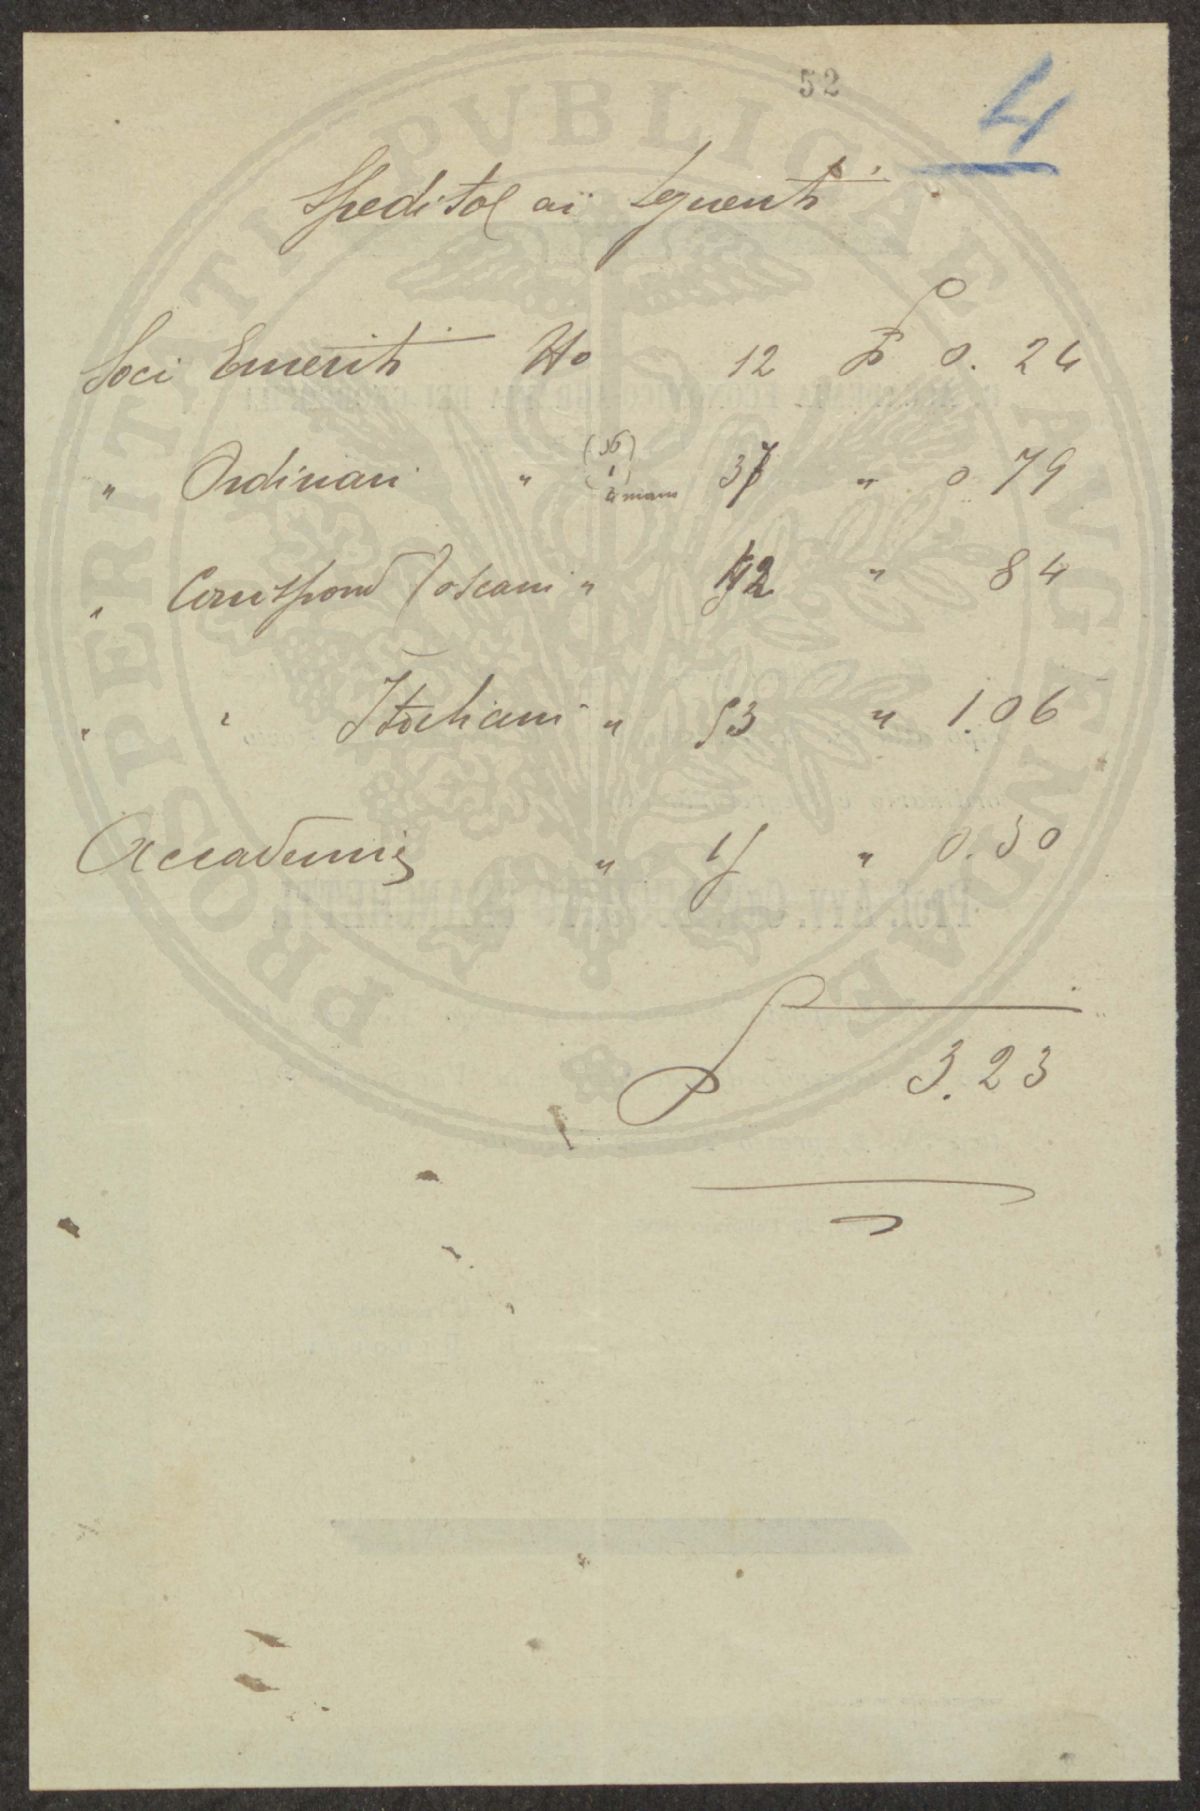 52
4
Spedite ai seguenti
Soci Emeriti No 12 £ 0.24
" Ordinari " 37 " 0 79
" Corrispond Toscani " 42 " 84
" " Italiani " 53 " 1.06
Accademie " 15 " 0.30
£ 3.23
PROSPERITATI PVBLICAE AVGENDAE